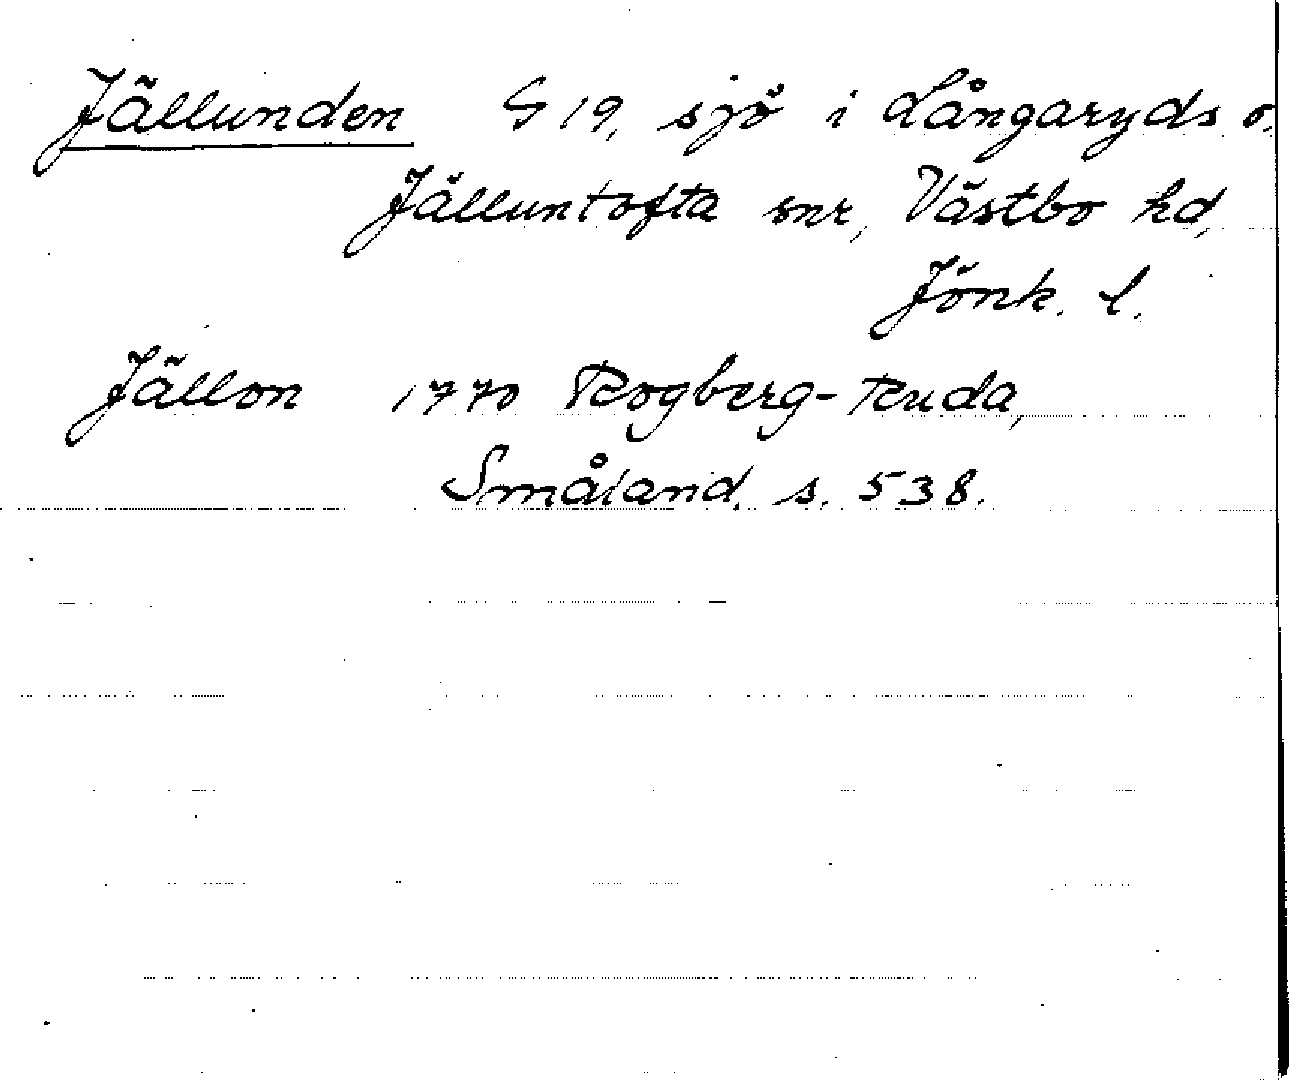 Jällunden G 19, sjö i Långaryds o.
Jälluntofta snr, Västbo hd,
Jönk. l.
Jällon 1770 Rogberg-Ruda,
Småland, s. 538.